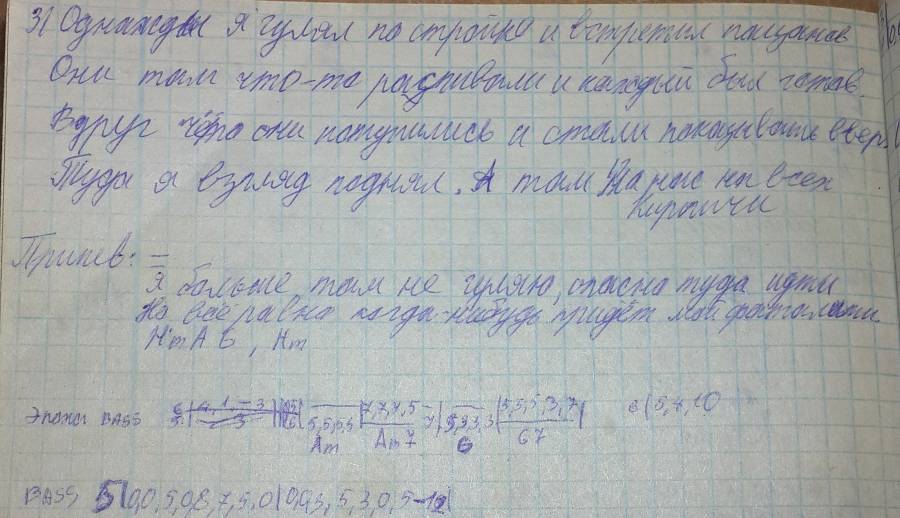 3) Однажды я гулял по стройке и встретил пацанов
Они там что-то распивали и каждый был готов.
Вдруг чего они потупились и стали показывать вверх
Туда я взгляд поднял. А там на нас на всех
кирпичи
Припев:
Я больше там не гуляю, опасно туда идти
Но всё равно когда-нибудь придёт мой
HmA G, Hm
Эпилог BASS 5,5,5,5 7,7,7,5 5,5,5,3,7 6 5,7,10
Am Am7 G G7
BASS 5 0,0,5,0,8,7,5,0 0,0,3,5,3,0,5